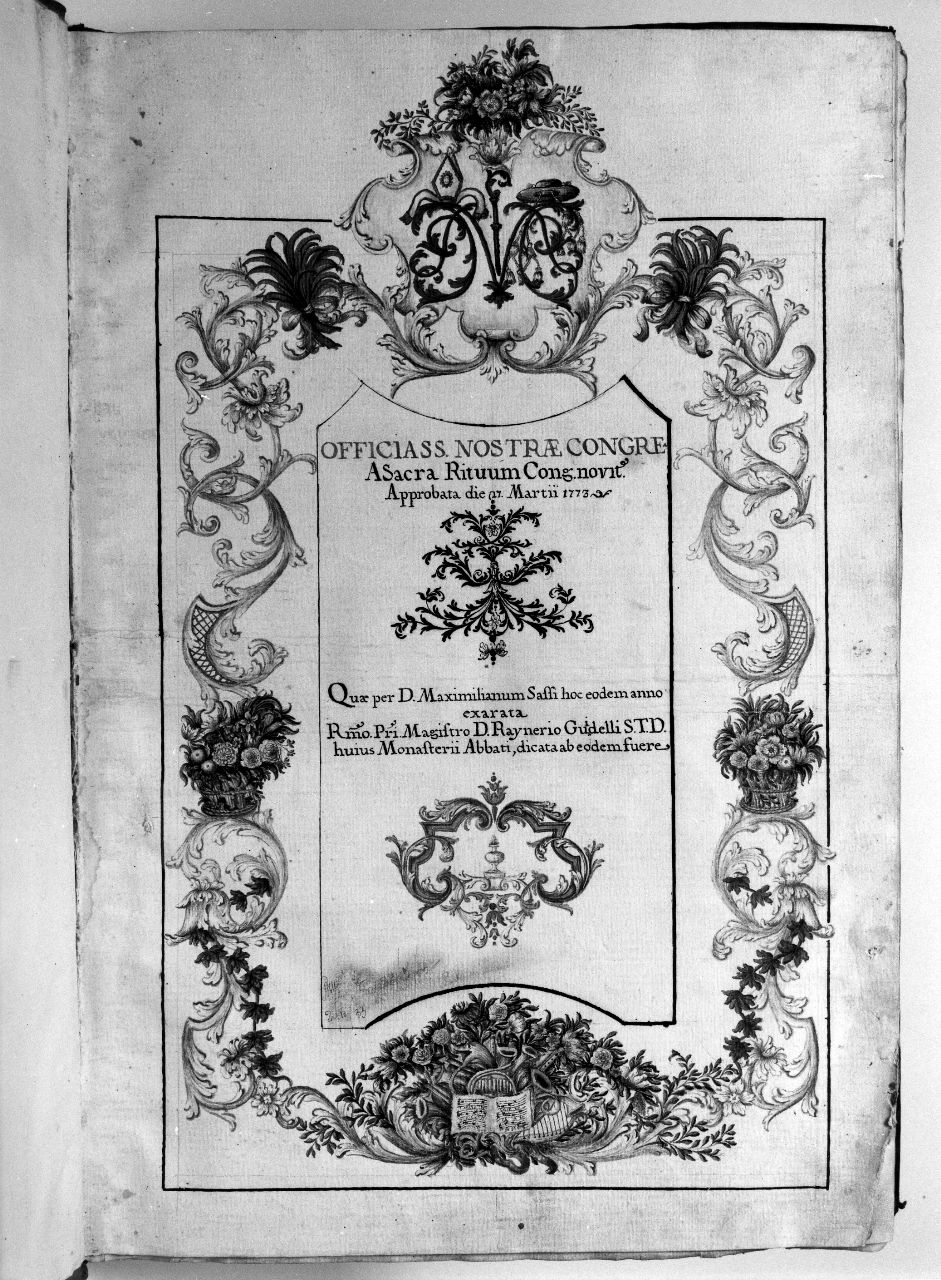 OFFICIA SS. NOSTRÆ CONGRE-
A Sacra Rituum Cong. novit.^er
Approbata die 27. Martii 1773.
Quæ per D. Maximilianum Saſſi hoc eodem anno
exarata
Rm̃o. Pr̃i. Magiſtro D. Raynerio Guidelli S.T.D.
huius Monaſterii Abbati, dicata ab eodem fuere